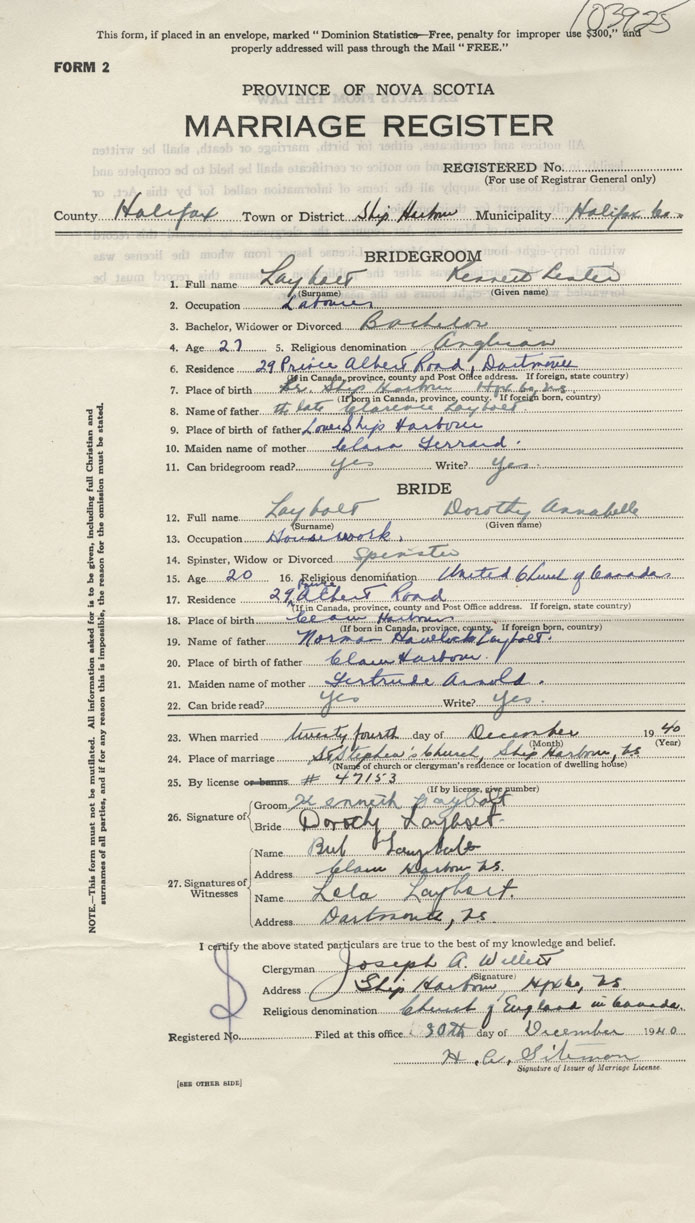 103925
This form, if placed in an envelope, marked "Dominion Statistics—Free, penalty for improper use $300," and
properly addressed will pass through the Mail "FREE."
FORM 2
PROVINCE OF NOVA SCOTIA
MARRIAGE REGISTER
REGISTERED No.
(For use of Registrar General only)
County Halifax Town or District Ship Harbour Municipality Halifax Co.
BRIDEGROOM
1. Full name Laybolt Kenneth Lester
(Surname) (Given name)
2. Occupation Labourer
3. Bachelor, Widower or Divorced Bachelor
4. Age 27 5. Religious denomination Anglican
6. Residence 29 Prince Albert Road, Dartmouth
(If in Canada, province, county and Post Office address. If foreign, state country)
7. Place of birth Lr. Ship Harbour Hfx Co, N.S.
(If born in Canada, province, county. If foreign born, country)
8. Name of father the late Clarence Laybolt.
9. Place of birth of father Lower Ship Harbour
10. Maiden name of mother Clara Gerrard.
11. Can bridegroom read? yes Write? yes.
BRIDE
12. Full name Laybolt Dorothy Annabelle
(Surname) (Given name)
13. Occupation Housework.
14. Spinster, Widow or Divorced Spinster
15. Age 20 16. Religious denomination United Church of Canada
17. Residence 29 Prince Albert Road
(If in Canada, province, county and Post Office address. If foreign, state country)
18. Place of birth Clam Harbour
(If born in Canada, province, county. If foreign born, country)
19. Name of father Norman Havelock Laybolt.
20. Place of birth of father Clam Harbour.
21. Maiden name of mother Gertrude Arnold.
22. Can bride read? yes Write? yes.
23. When married twenty fourth day of December 1940
(Month) (Year)
24. Place of marriage St Stephen's Church, Ship Harbour, NS
(Name of church or clergyman's residence or location of dwelling house)
25. By license or banns # 47153
(If by license, give number)
26. Signature of
Groom Kenneth Laybolt
Bride Dorothy Laybolt
27. Signatures of Witnesses
Name Laybolt
Address Clam Harbour NS.
Name Lela Laybolt.
Address Dartmouth, NS.
I certify the above stated particulars are true to the best of my knowledge and belief.
Clergyman Joseph A. Willett
(Signature)
Address Ship Harbour, Hfx Co, NS
Religious denomination Church of England in Canada.
Registered No. Filed at this office 30th day of December 1940
H. C. Siteman
Signature of Issuer of Marriage License.
[SEE OTHER SIDE]
NOTE.—This form must not be mutilated. All information asked for is to be given, including full Christian and
surnames of all parties, and if for any reason this is impossible, the reason for the omission must be stated.